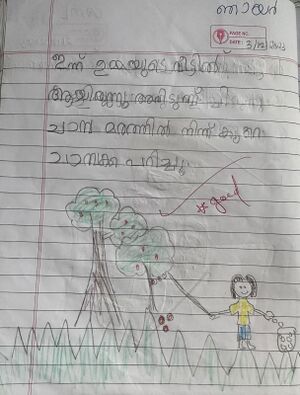 ഞായർ
PAGE NO.
DATE: 3/12/2023
ഇന്ന് ഉമ്മയുടെ വീട്ടിൽ
ആയിരുന്നു അവിടുന്ന്
ചാമ്പ മരത്തിൽ നിന്ന് കുറെ
ചാമ്പക്ക പറിച്ചു
good